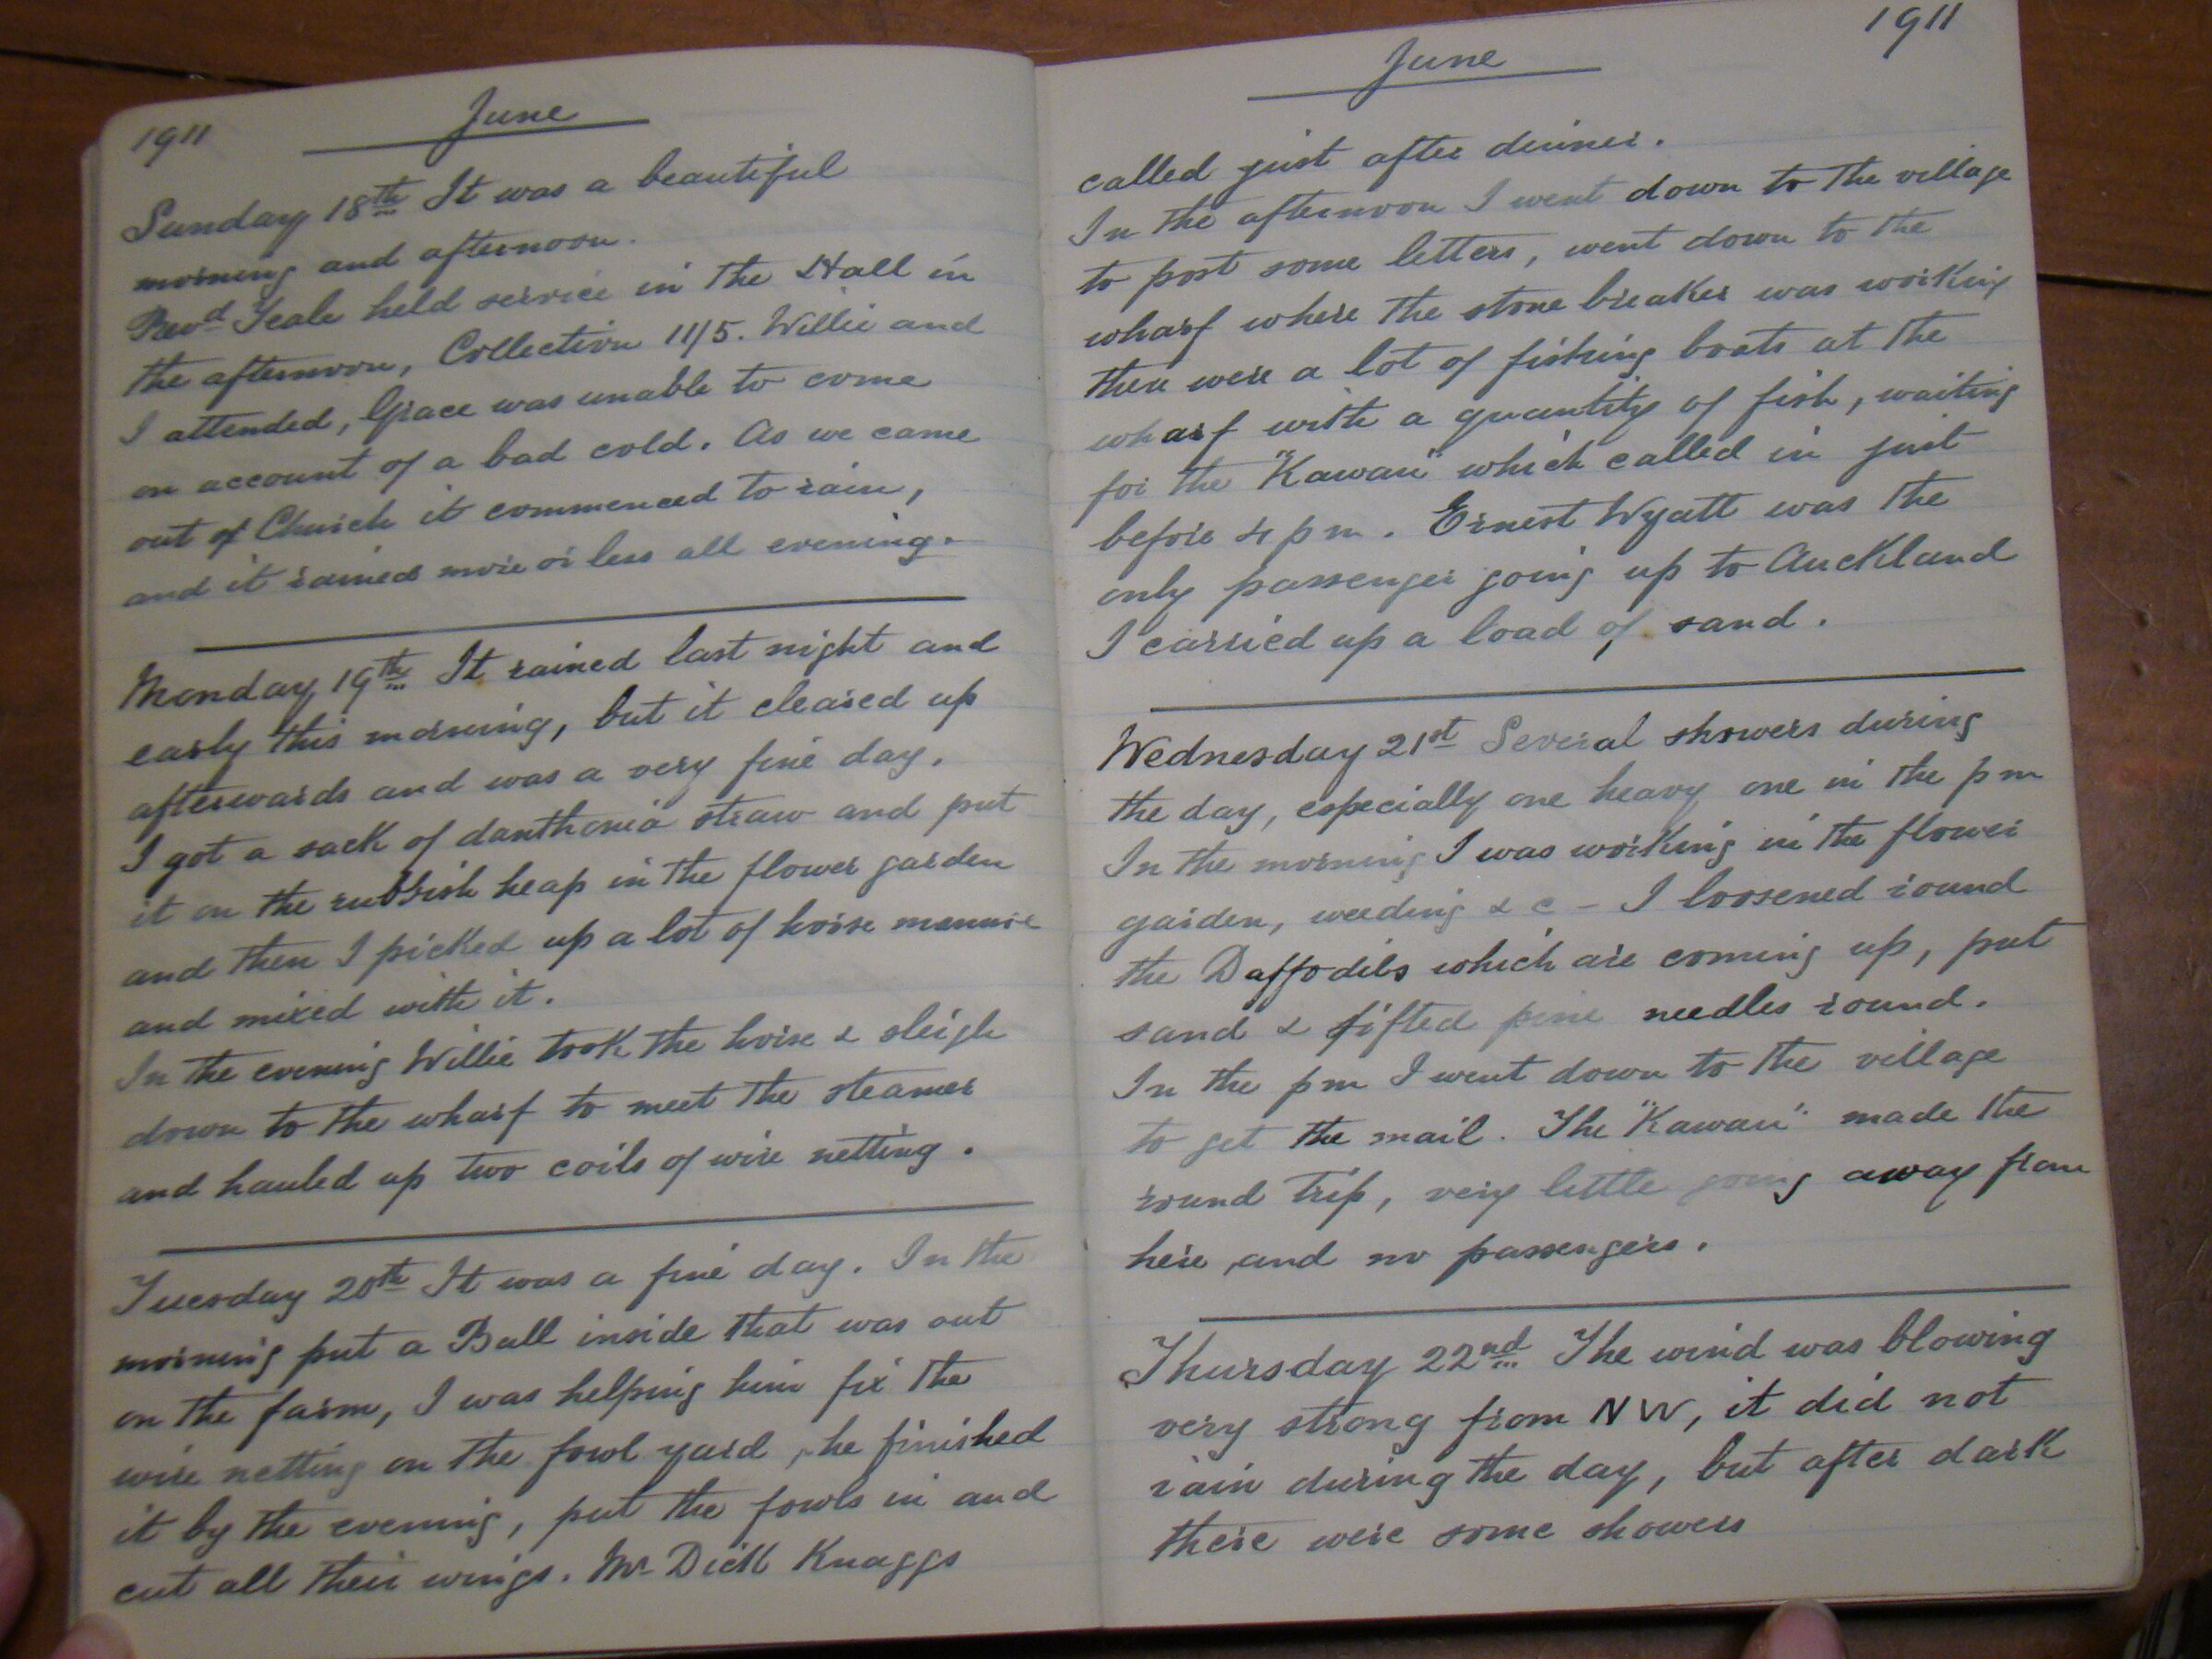 1911
June
Sunday 18th It was a beautiful
morning and afternoon.
Revd Yeale held service in the Hall in
the afternoon, Collection 11/5. Willie and
I attended, Grace was unable to come
on account of a bad cold. As we came
out of Church it commenced to rain,
and it rained more or less all evening.
Monday 19th It rained last night and
early this morning, but it cleared up
afterwards and was a very fine day.
I got a sack of danthonia straw and put
it on the rubbish heap in the flower garden
and then I picked up a lot of horse manure
and mixed with it.
In the evening Willie took the horse & sleigh
down to the wharf to meet the steamer
and hauled up two coils of wire netting.
Tuesday 20th It was a fine day. In the
morning put a Bull inside that was out
on the farm, I was helping him fix the
wire netting on the fowl yard, he finished
it by the evening, put the fowls in and
cut all their wings. Mr Dick Knaggs
June
1911
called just after dinner.
In the afternoon I went down to the village
to post some letters, went down to the
wharf where the stone breaker was working
there were a lot of fishing boats at the
wharf with a quantity of fish, waiting
for the "Kawau" which called in just
before 4 pm. Ernest Wyatt was the
only passenger going up to Auckland
I carried up a load of sand.
Wednesday 21st Several showers during
the day, especially one heavy one in the pm
In the morning I was working in the flower
garden, weeding & c - I loosened round
the Daffodils which are coming up, put
sand & sifted pine needles round.
In the pm I went down to the village
to get the mail. The "Kawau" made the
round trip, very little going away from
here, and no passengers.
Thursday 22nd The wind was blowing
very strong from NW, it did not
rain during the day, but after dark
there were some showers